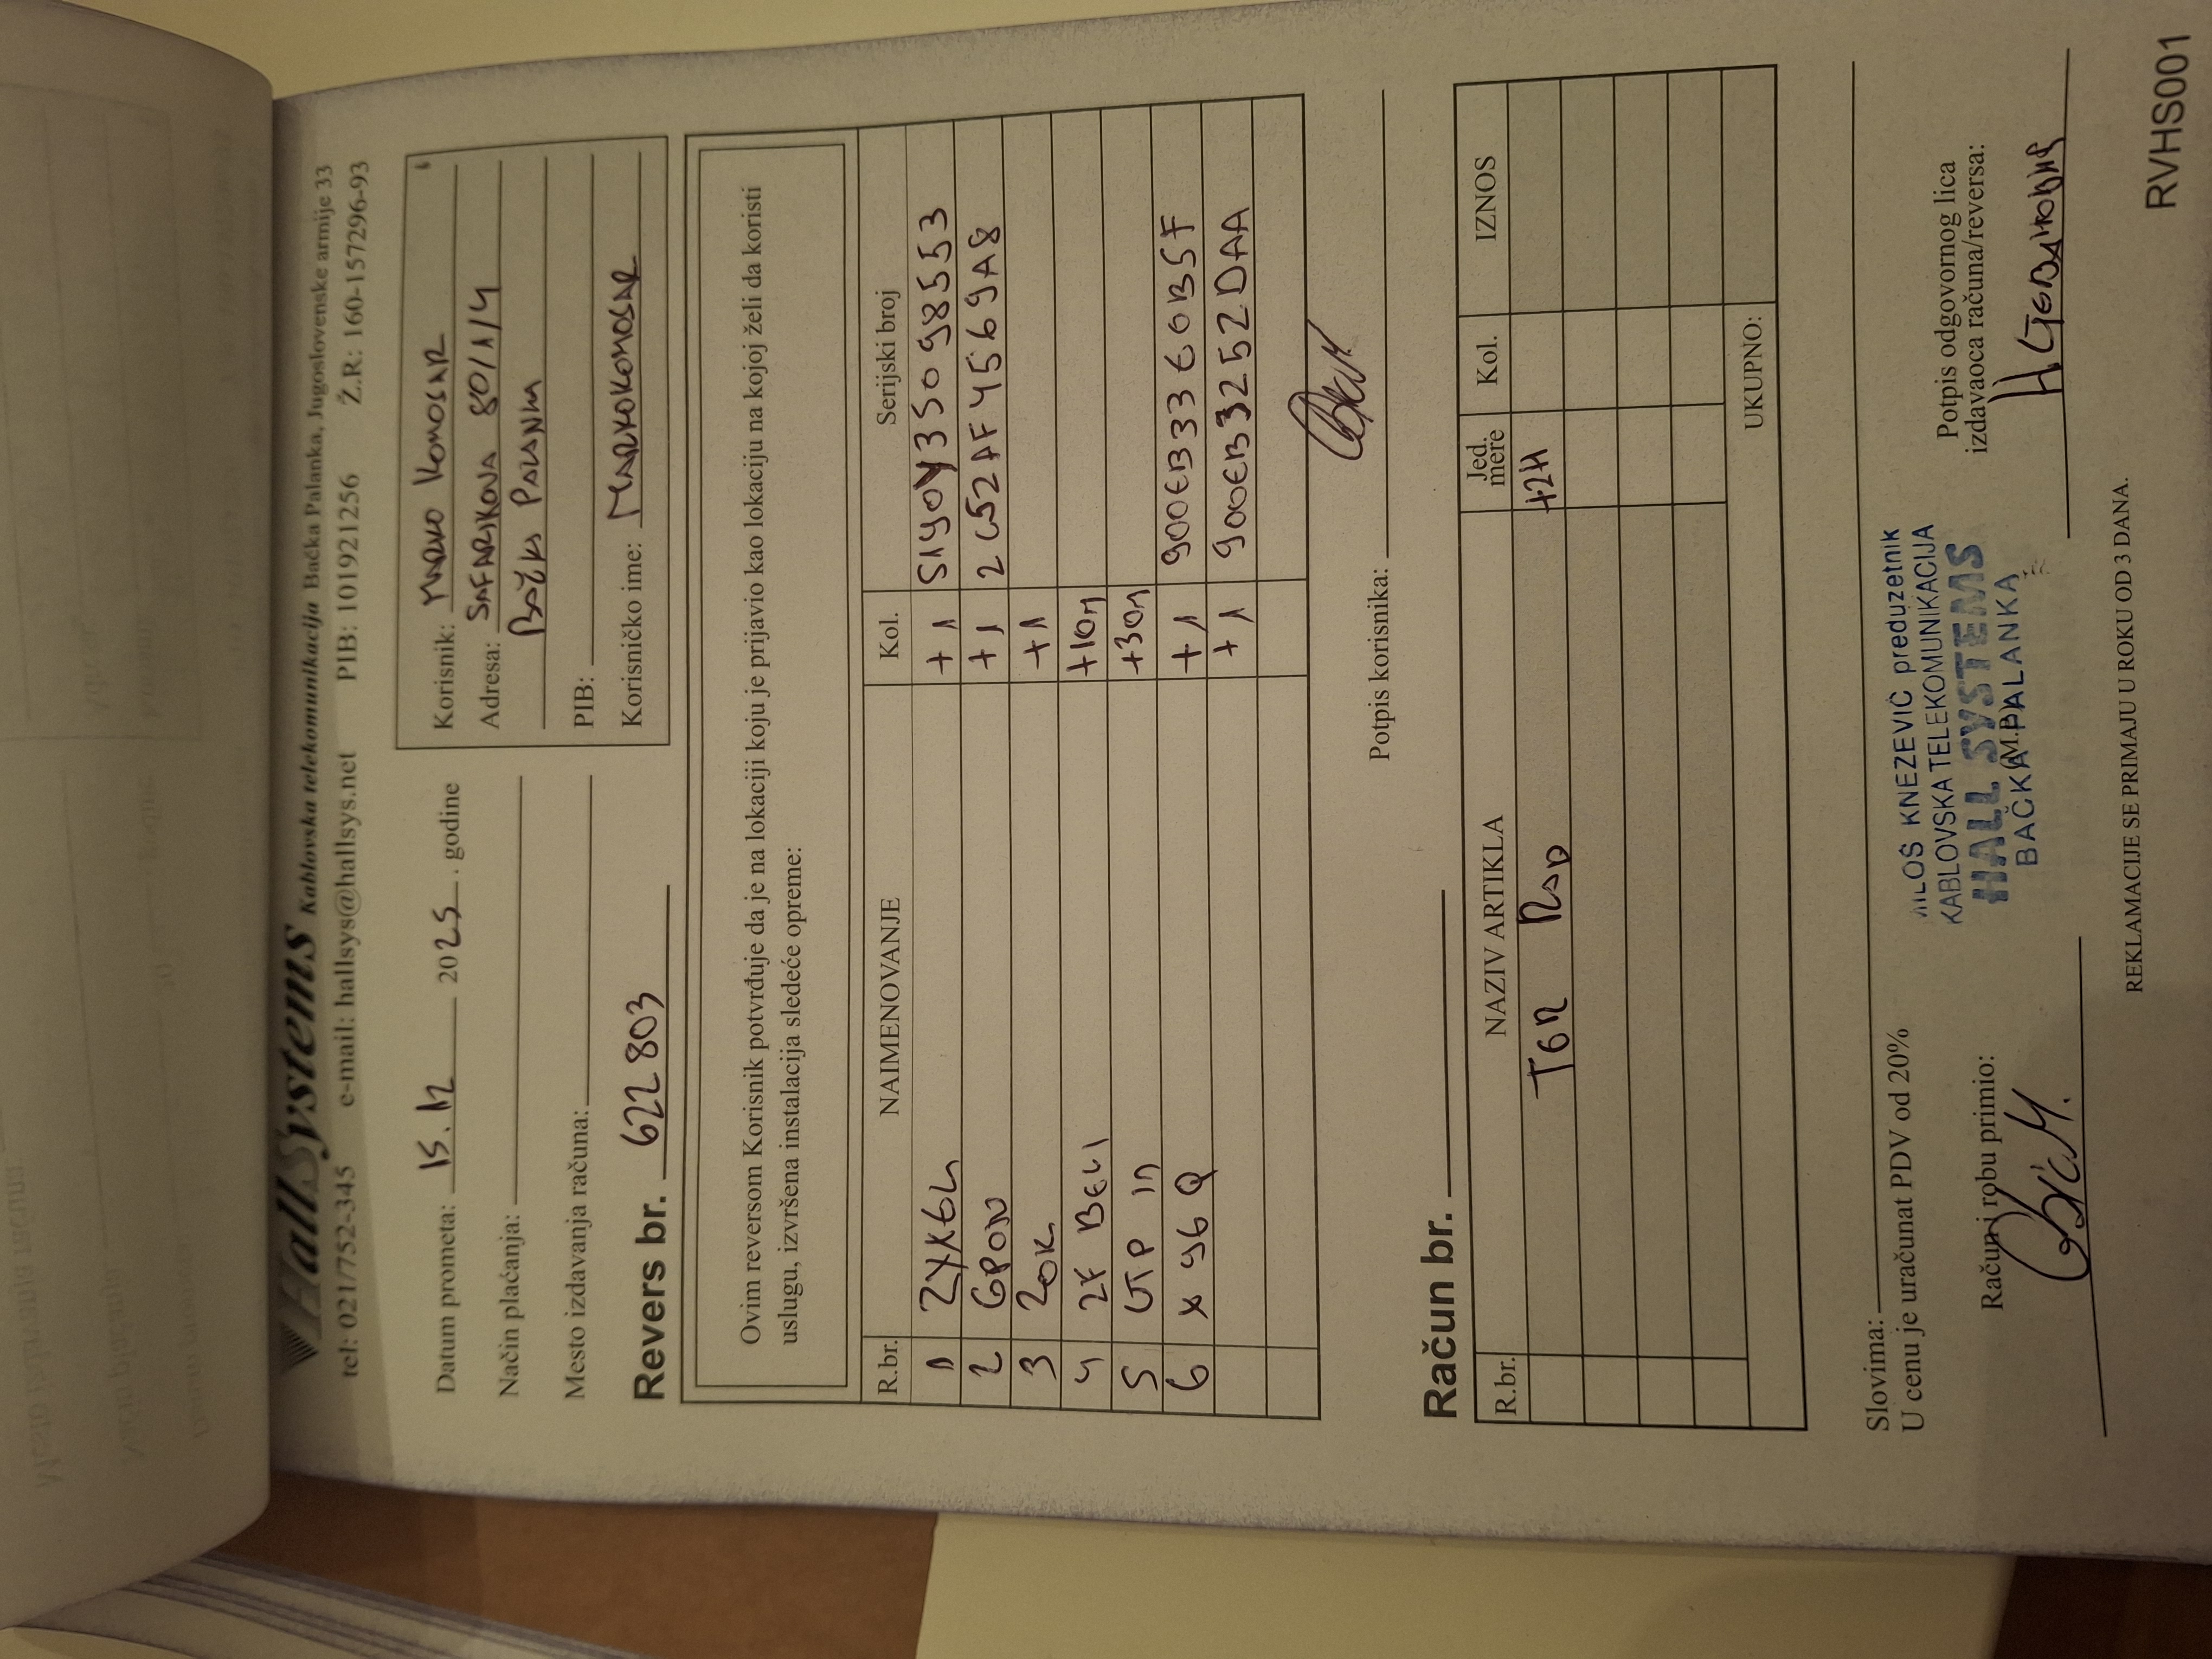 HallSystems Kablovska telekomunikacija Bačka Palanka, Jugoslovenske armije 33
tel: 021/752-345 e-mail: hallsys@hallsys.net PIB: 101921256 Ž.R: 160-157296-93
Datum prometa: 15.12 2025. godine
Način plaćanja:
Mesto izdavanja računa:
Revers br. 622803
Korisnik: MARKO KOMOSAR
Adresa: SAFARIKOVA 80/1/4
BAČKA PALANKA
PIB:
Korisničko ime: MARKOKOMOSAR
Ovim reversom Korisnik potvrđuje da je na lokaciji koju je prijavio kao lokaciju na kojoj želi da koristi
uslugu, izvršena instalacija sledeće opreme:
R.br. NAIMENOVANJE Kol. Serijski broj
1 ZYXEL +1 S190Y35098553
2 GPON +1 2C52AF4569A8
3 ZOK +1
4 2F BELI +10m
5 UTP in +30m
6 X 96 Q +1 900EB3360B5F
+1 900EB3252DAA
Potpis korisnika:
Račun br.
R.br. NAZIV ARTIKLA Jed. mere Kol. IZNOS
TER RAD +2H
UKUPNO:
Slovima:
U cenu je uračunat PDV od 20%
Račun i robu primio:
MILOŠ KNEZEVIĆ preduzetnik
KABLOVSKA TELEKOMUNIKACIJA
HALL SYSTEMS
(M.P.)
BAČKA PALANKA
Potpis odgovornog lica
izdavaoca računa/reversa:
REKLAMACIJE SE PRIMAJU U ROKU OD 3 DANA.
RVHS001